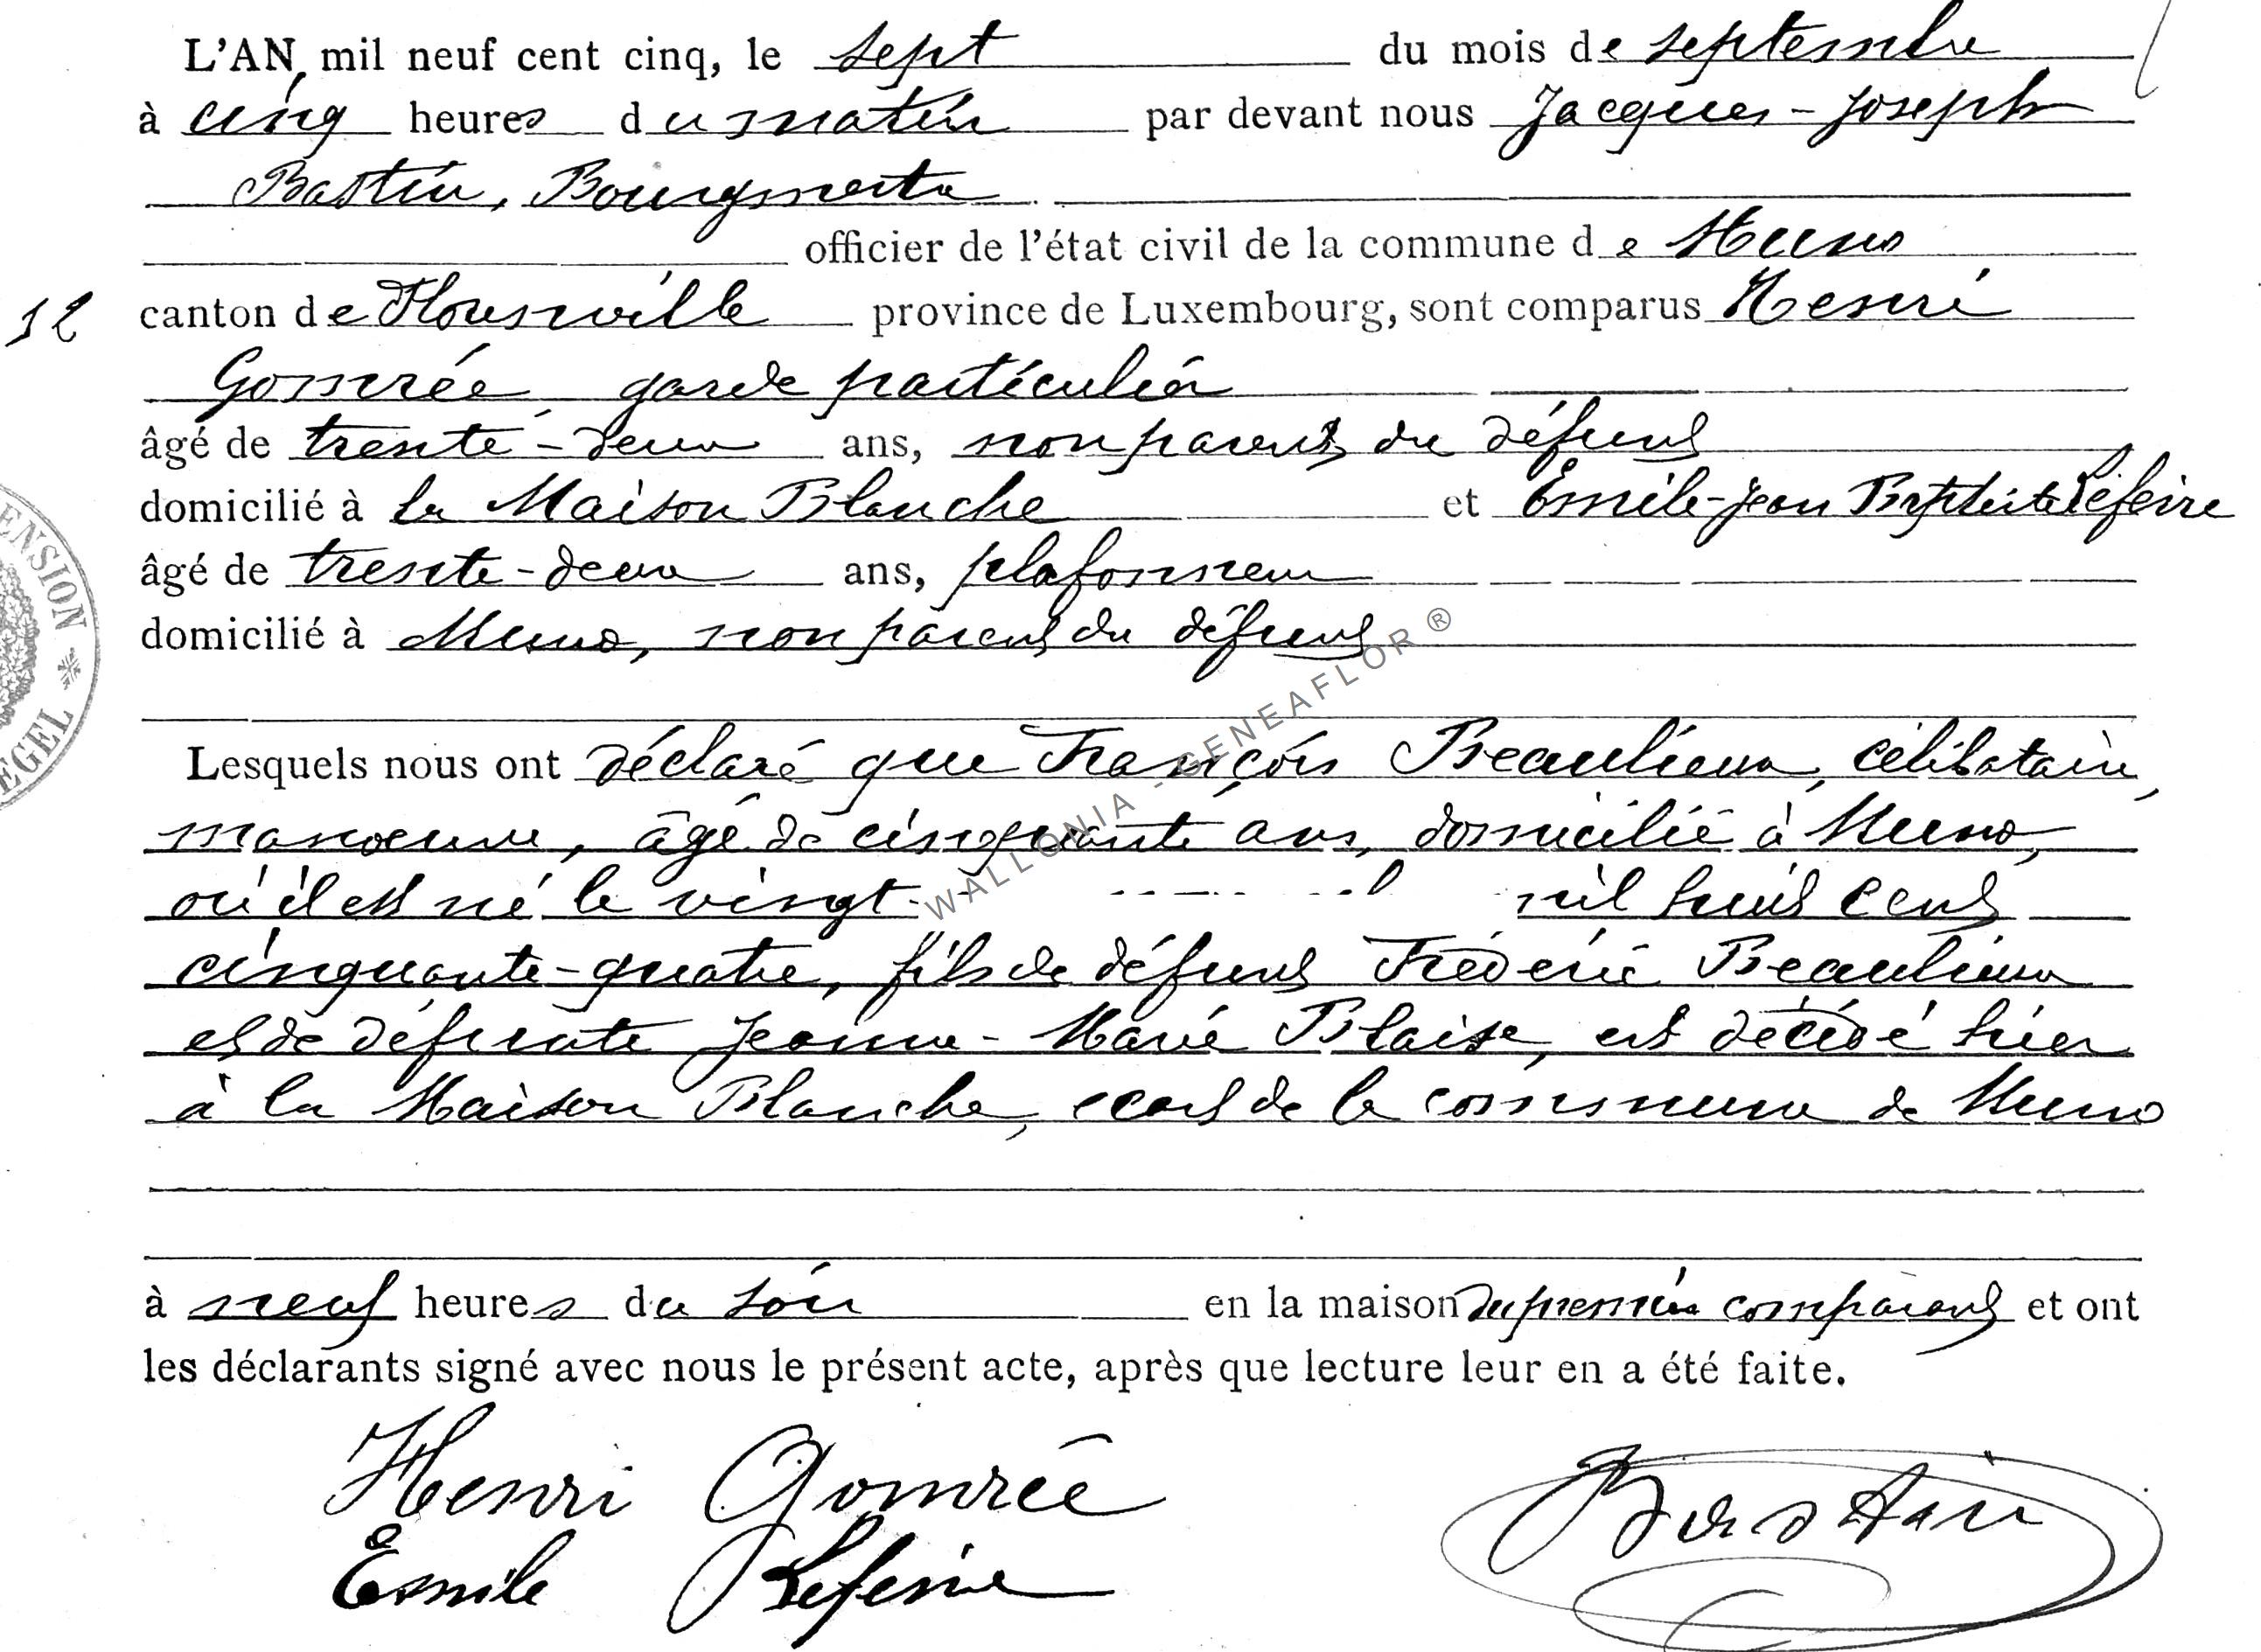 L'AN mil neuf cent cinq, le sept du mois de septembre
à cinq heures du matin par devant nous Jacques-Joseph
Bastin, Bourgmestre
officier de l'état civil de la commune de Muno
12 canton de Florenville province de Luxembourg, sont comparus Henri
Gomrée, garde particulier
âgé de trente-deux ans, non parent du défunt
domicilié à la Maison Blanche et Emile-Jean Baptiste
âgé de trente-deux ans, plafonneur
domicilié à Muno, non parent du défunt
Lesquels nous ont déclaré que François Beaulieux, célibataire,
manoeuvre, âgé de cinquante ans, domicilié à Muno,
où il est né le vingt- mil huit cent
cinquante-quatre, fils de défunt Frédéric Beaulieux
et de défunte Jeanne-Marie Blaise, est décédé hier
à la Maison Blanche, écart de la commune de Muno
à neuf heures du soir en la maison du premier comparant et ont
les déclarants signé avec nous le présent acte, après que lecture leur en a été faite.
Henri Gomrée
Emile
Bastin
WALLONIA - GENEAFLOR ®
ENSION
EGEL